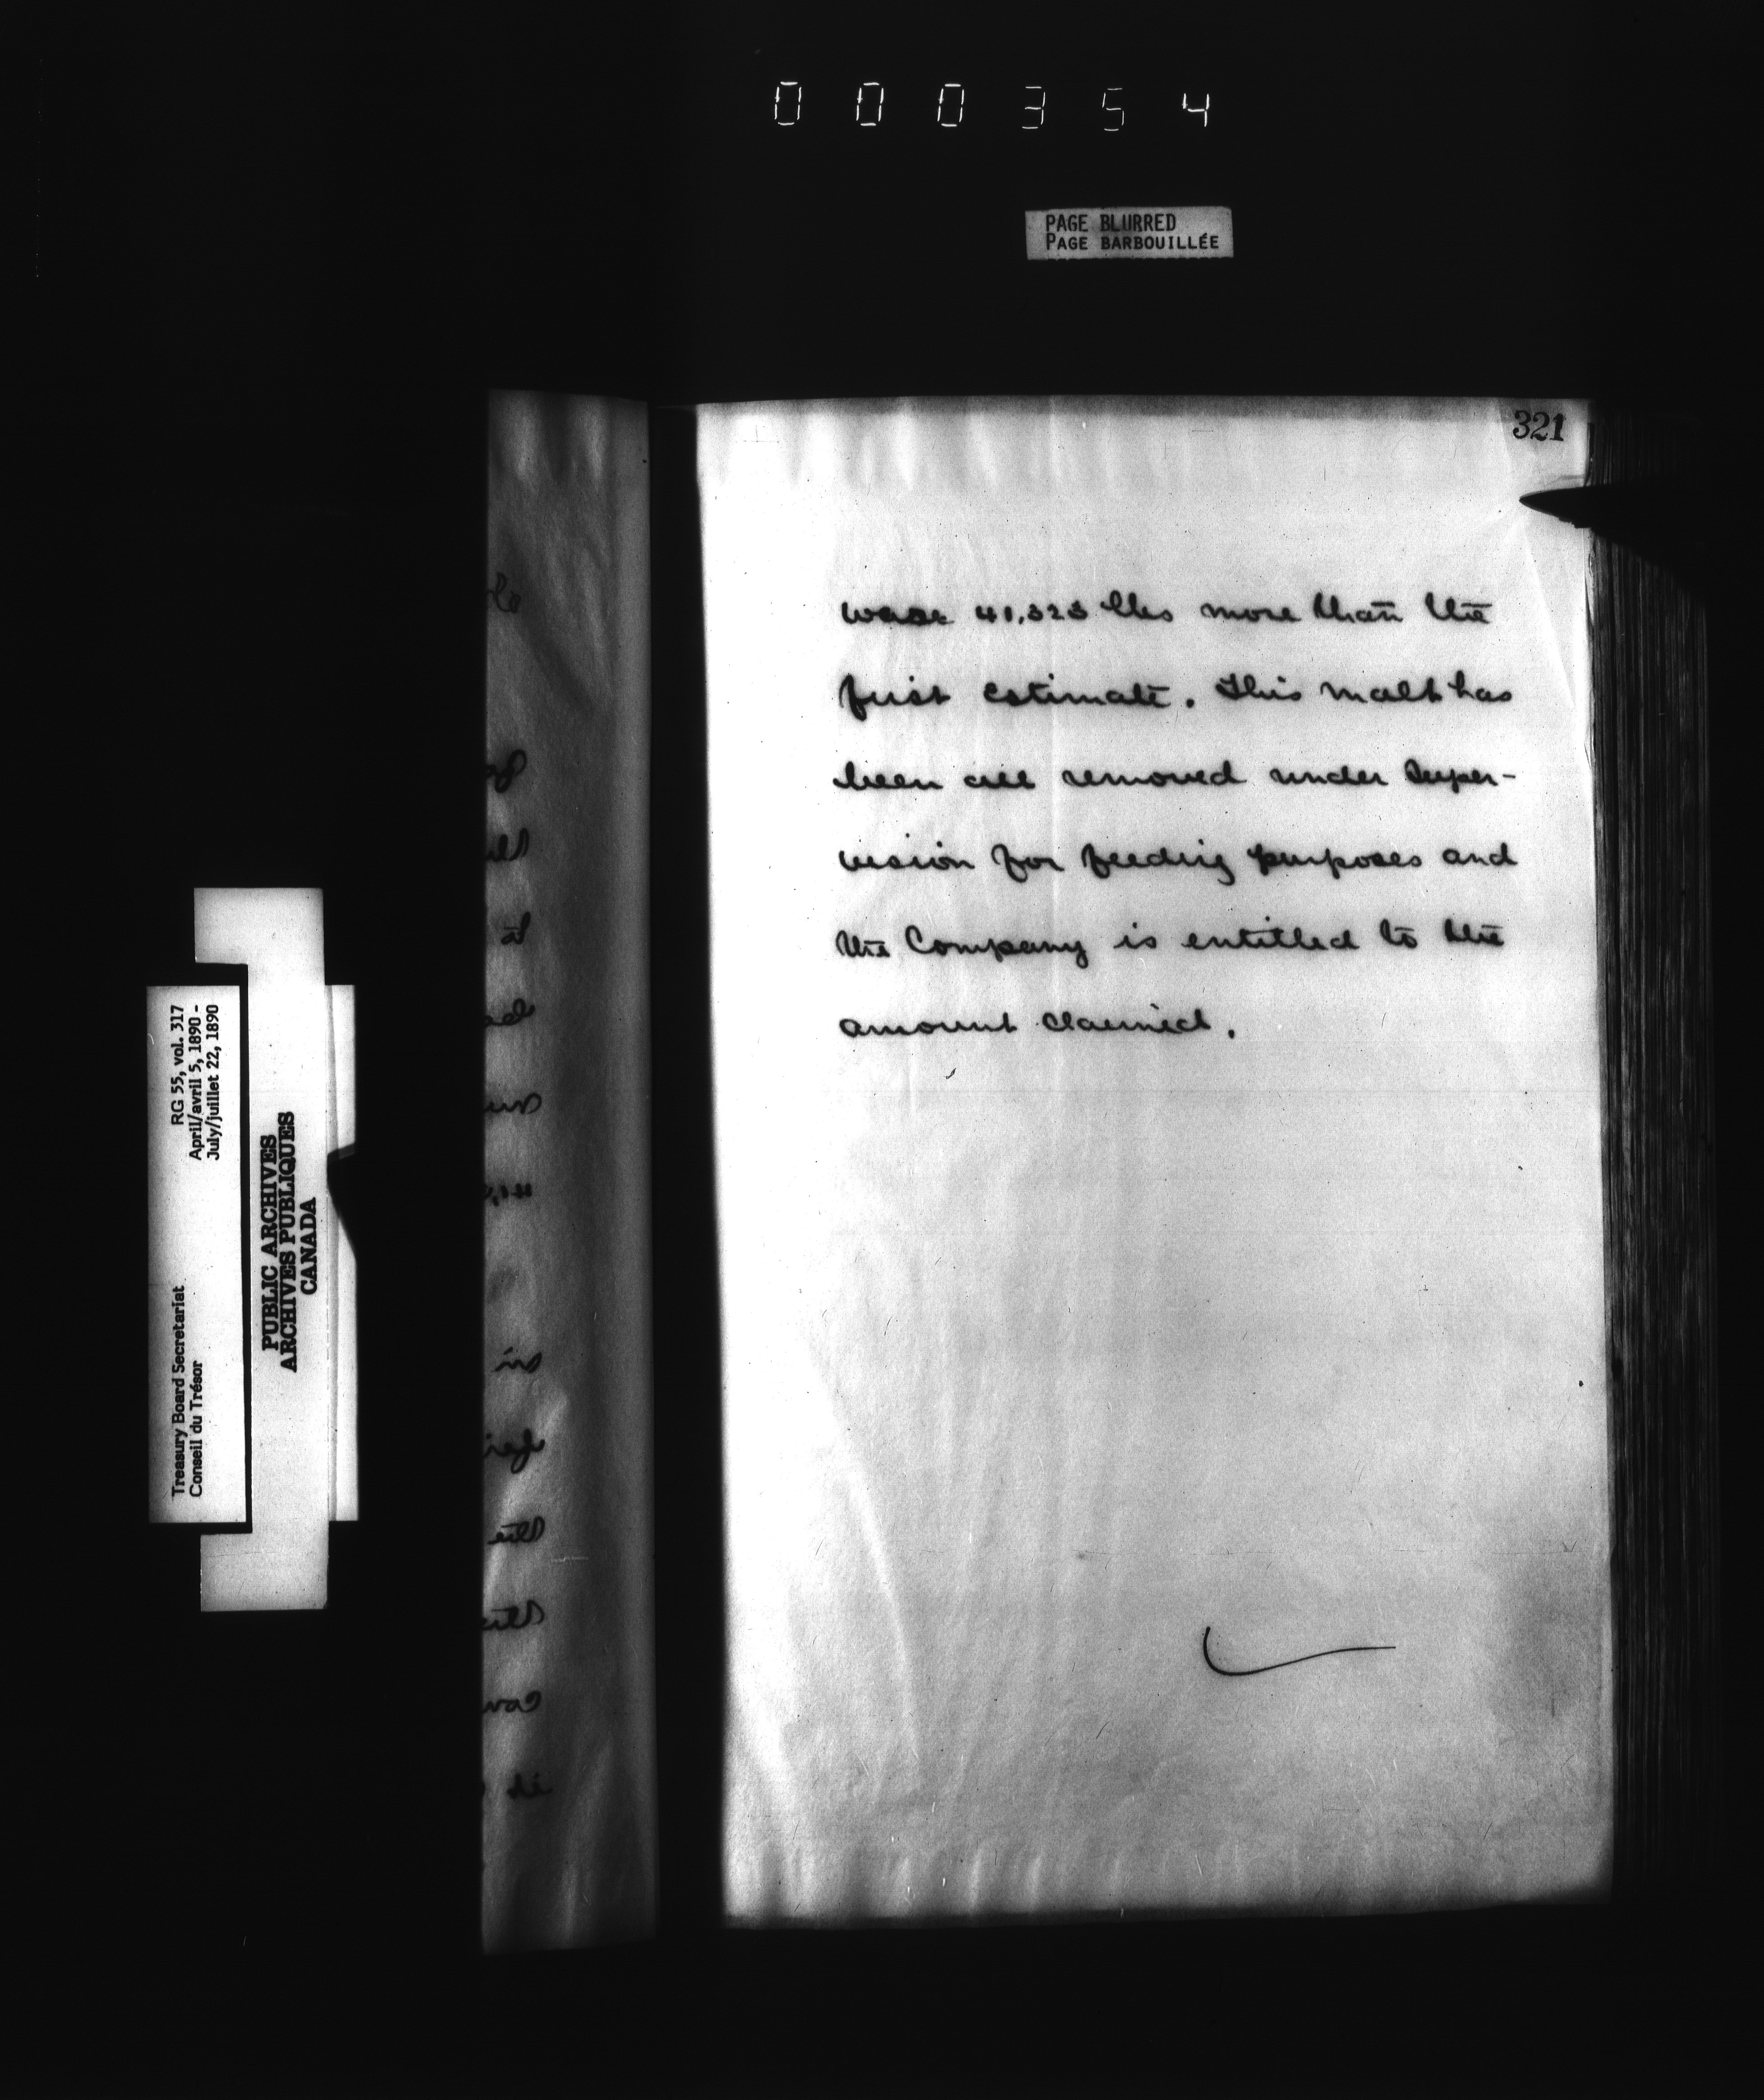 000354
PAGE BLURRED
PAGE BARBOUILLÉE
321
was 41,323 lbs more than the
first estimate. This malt has
been all removed under super-
vision for feeding purposes and
the Company is entitled to the
amount claimed.
RG 55, vol. 317
April/avril 5, 1890 -
July/juillet 22, 1890
Treasury Board Secretariat
Conseil du Trésor
PUBLIC ARCHIVES
ARCHIVES PUBLIQUES
CANADA